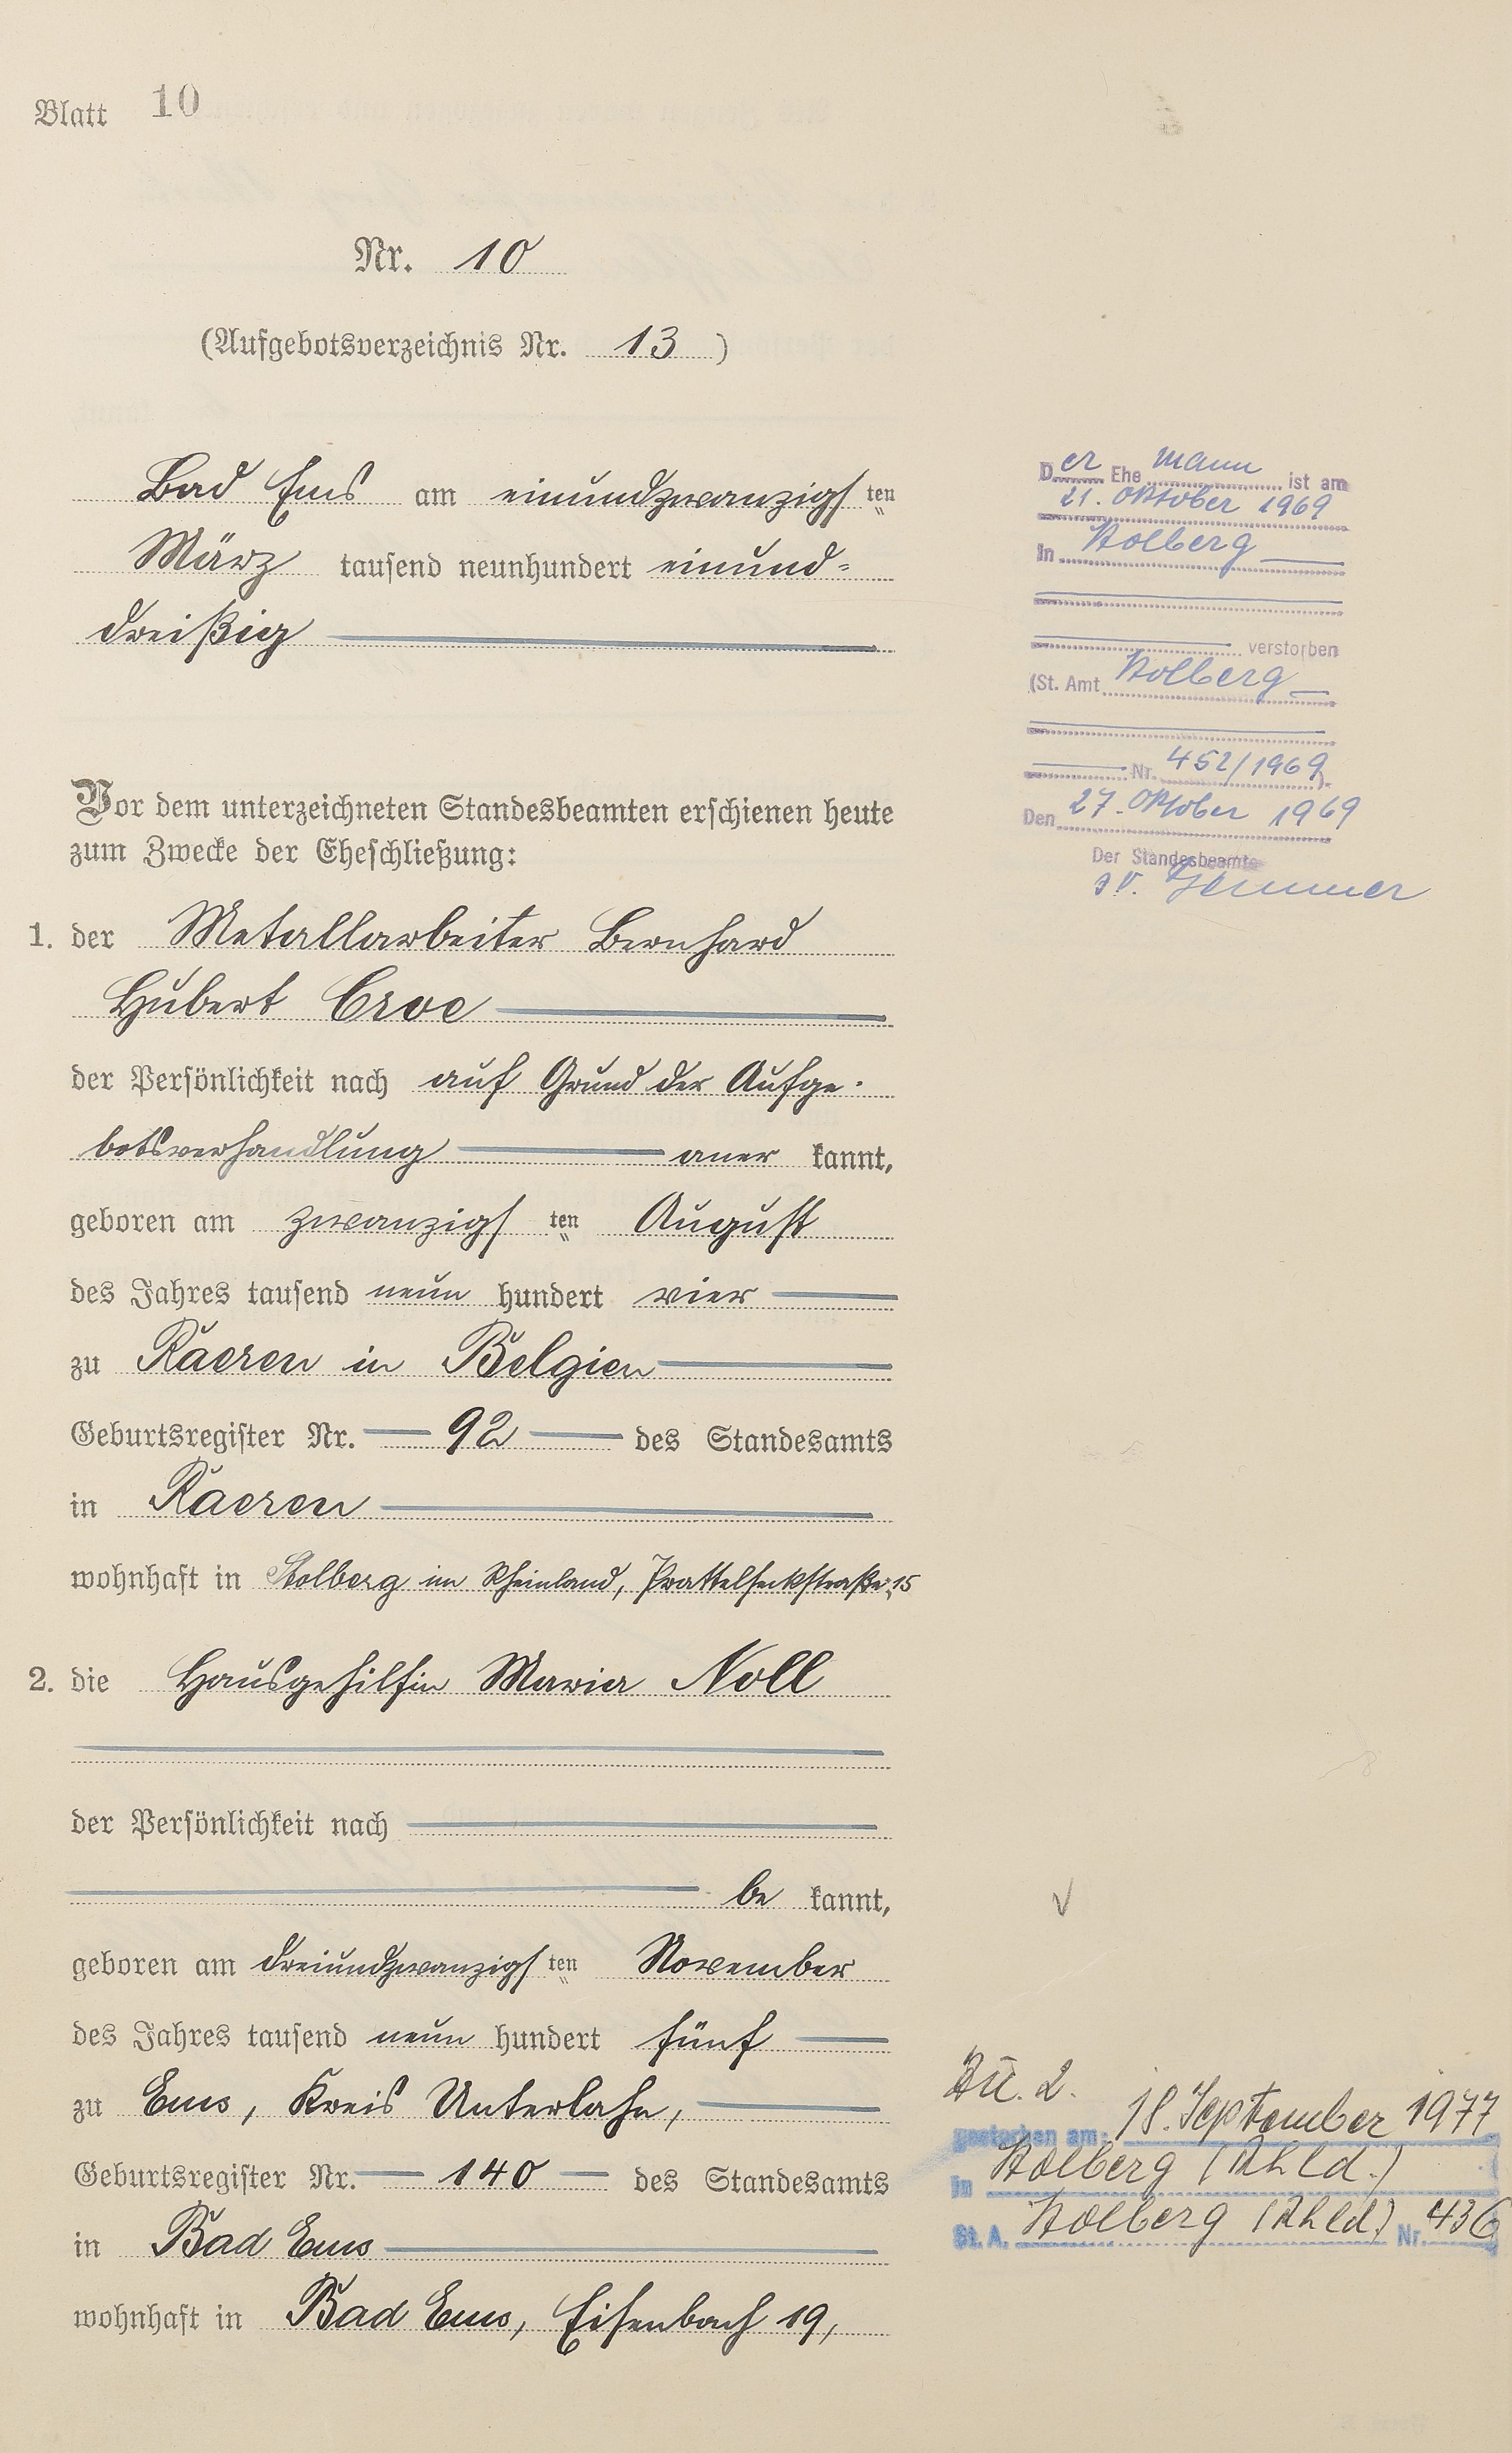 Blatt 10
Nr. 10
(Aufgebotsverzeichnis Nr. 13)
Bad Ems am einundzwanzigsten
März tausend neunhundert einund=
dreißig
Vor dem unterzeichneten Standesbeamten erschienen heute
zum Zwecke der Eheschließung:
1. der Metallarbeiter Bernhard
Hubert Croe
der Persönlichkeit nach auf Grund der Aufge-
botsverhandlung aner kannt,
geboren am zwanzigsten August
des Jahres tausend neun hundert vier
zu Raeren in Belgien
Geburtsregister Nr. 92 des Standesamts
in Raeren
wohnhaft in Stolberg im Rheinland, 15
2. die Hausgehilfin Maria Noll
der Persönlichkeit nach
be kannt,
geboren am dreiundzwanzigsten November
des Jahres tausend neun hundert fünf
zu Ems, Kreis Unterlahn,
Geburtsregister Nr. 140 des Standesamts
in Bad Ems
wohnhaft in Bad Ems, Eisenbach 19,
Der Ehe mann ist am
21. Oktober 1969
in Stolberg
verstorben
(St. Amt Stolberg
Nr. 452/1969).
Den 27. Oktober 1969
Der Standesbeamte
I.V.
Zu. 2.
gestorben am: 18. September 1977
in Stolberg (Rhld.)
St. A. Stolberg (Rhld.) Nr. 436